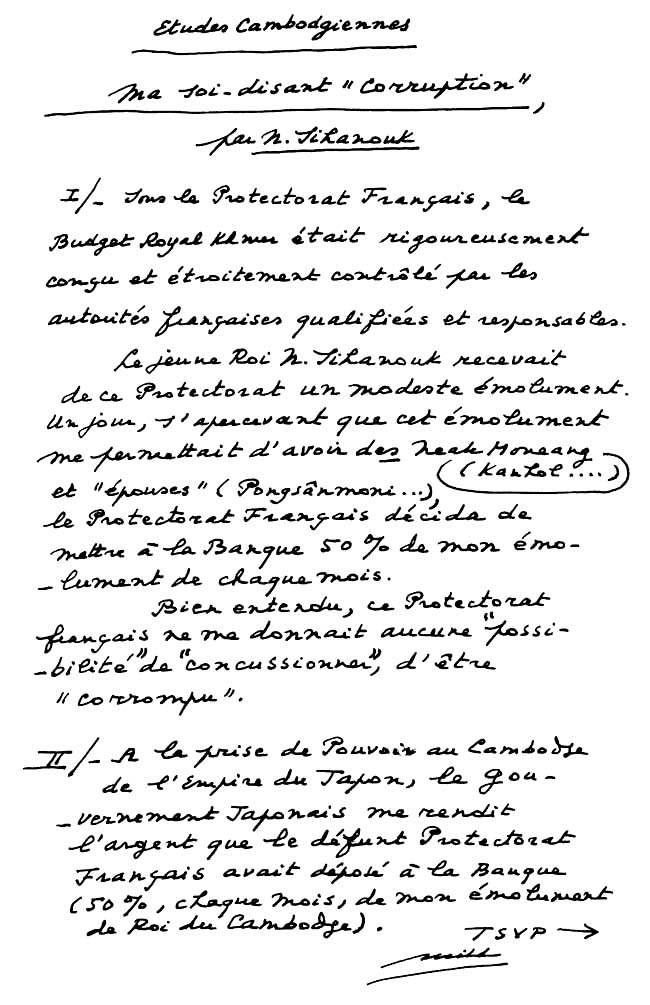 Etudes Cambodgiennes
Ma soi-disant "Corruption",
par N. Sihanouk
I/- Sous le Protectorat Français, le
Budget Royal Khmer était rigoureusement
conçu et étroitement contrôlé par les
autorités françaises qualifiées et responsables.
Le jeune Roi N. Sihanouk recevait
de ce Protectorat un modeste émolument.
Un jour, s'apercevant que cet émolument
me permettait d'avoir des Neak Moneang
(Kanhol....)
et "épouses" (Pongsânmoni...),
le Protectorat Français décida de
mettre à la Banque 50% de mon émo-
-lument de chaque mois.
Bien entendu, ce Protectorat
français ne me donnait aucune "possi-
-bilité" de "concussionner", d'être
"corrompu".
II/- A la prise de Pouvoir au Cambodge
de l'Empire du Japon, le gou-
-vernement Japonais me rendit
l'argent que le défunt Protectorat
Français avait déposé à la Banque
(50%, chaque mois, de mon émolument
de Roi du Cambodge).
TSVP →